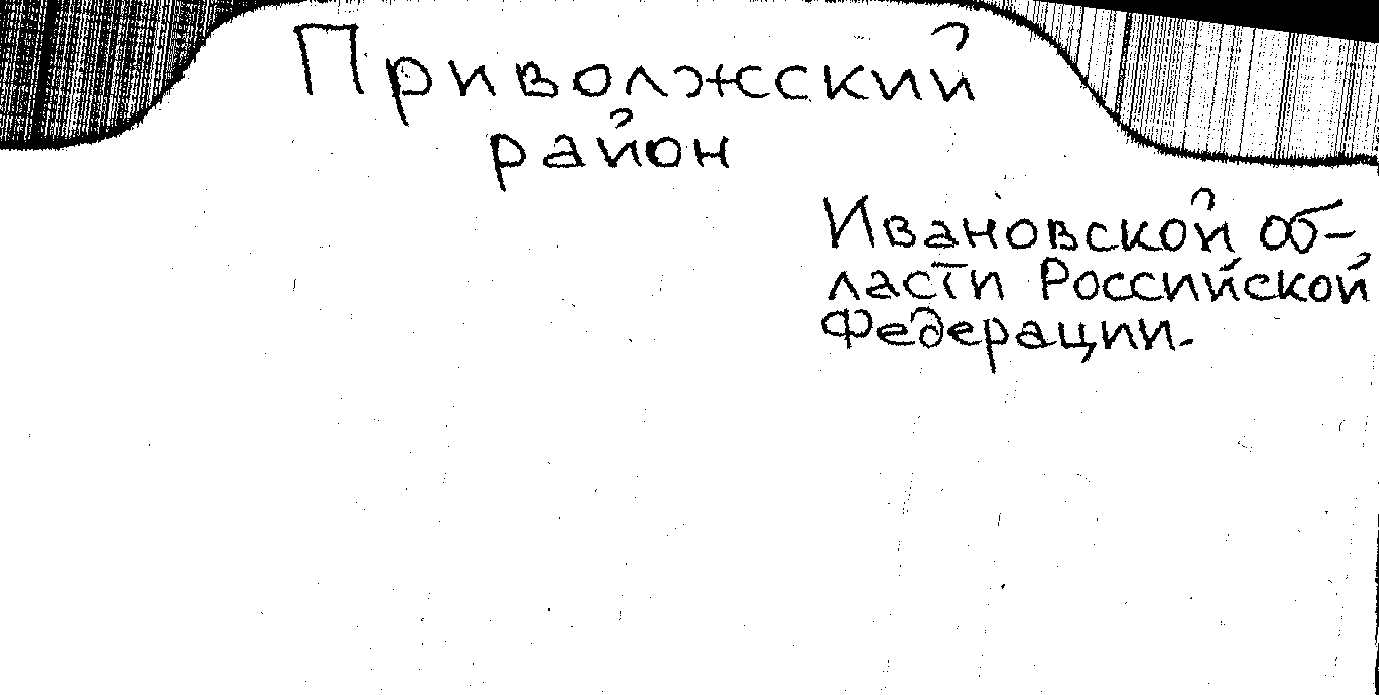 Приволжский
район
Ивановской об-
ласти Российской
Федерации.